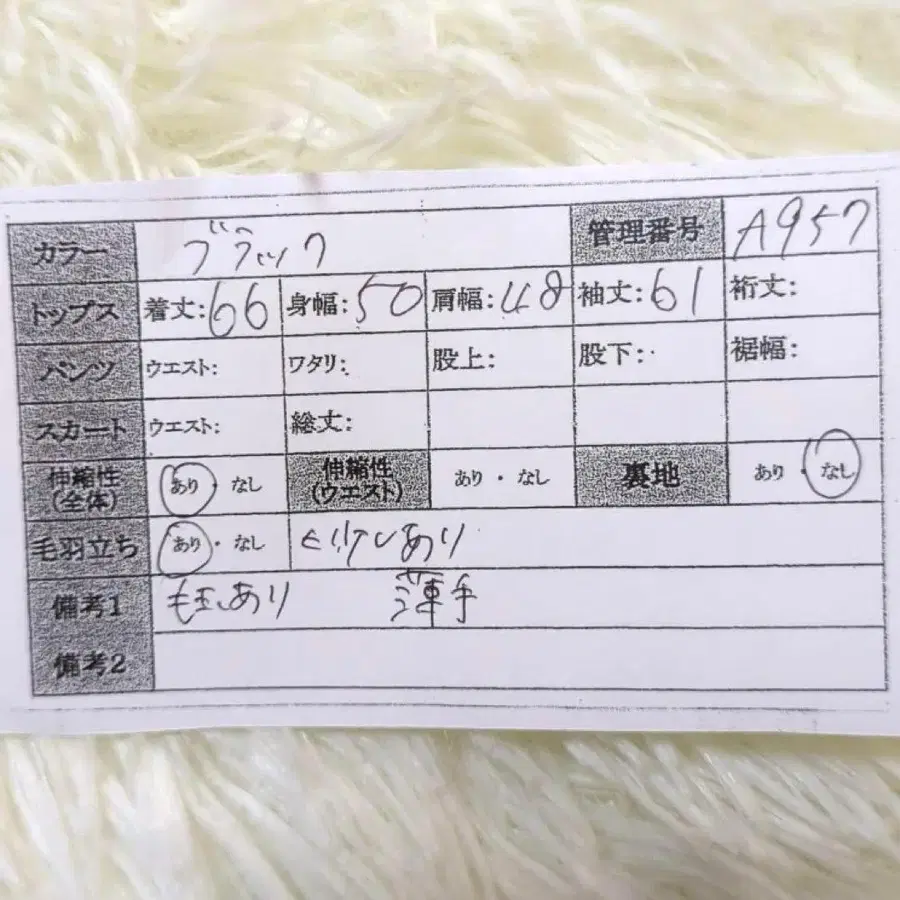 カラー ブラック 管理番号 A957
トップス 着丈:66 身幅:50 肩幅:48 袖丈:61 裄丈:
パンツ ウエスト: ワタリ: 股上: 股下: 裾幅:
スカート ウエスト: 総丈:
伸縮性(全体) あり・なし 伸縮性(ウエスト) あり・なし 裏地 あり・なし
毛羽立ち あり・なし ヒリケンあり
備考1 毛玉あり 薄手
備考2